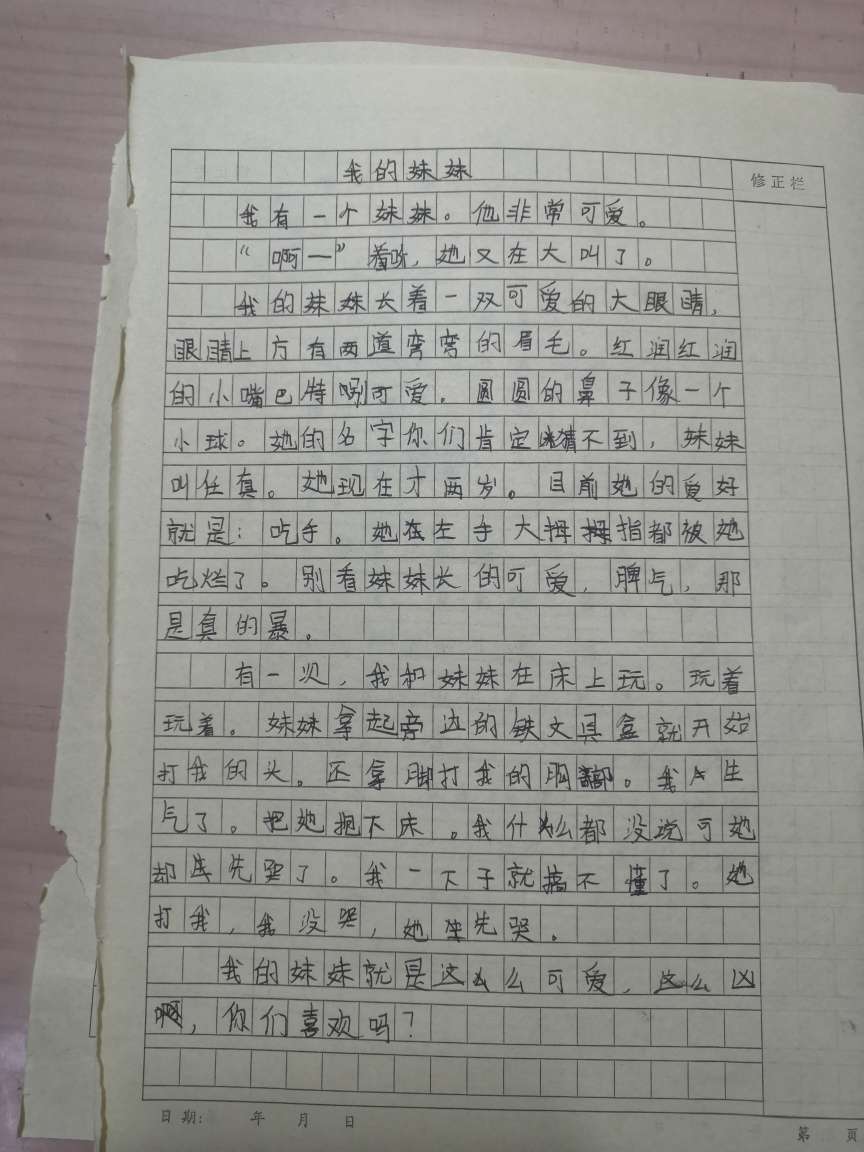 我的妹妹
修正栏
我有一个妹妹。他非常可爱。
“啊一”着呀，她又在大叫了。
我的妹妹长着一双可爱的大眼睛，
眼睛上方有两道弯弯的眉毛。红润红润
的小嘴巴特别可爱，圆圆的鼻子像一个
小球。她的名字你们肯定猜不到，妹妹
叫任真。她现在才两岁。目前她的爱好
就是：吃手。她左手大拇指都被她
吃烂了。别看妹妹长的可爱，脾气，那
是真的暴。
有一次，我和妹妹在床上玩。玩着
玩着。妹妹拿起旁边的铁文具盒就开始
打我的头。还拿脚打我的胸部。我生
气了。把她抱下床。我什么都没说可她
却先哭了。我一下子就搞不懂了。她
打我，我没哭，她先哭。
我的妹妹就是这么可爱，这么凶
啊，你们喜欢吗？
日期： 年 月 日
第 页